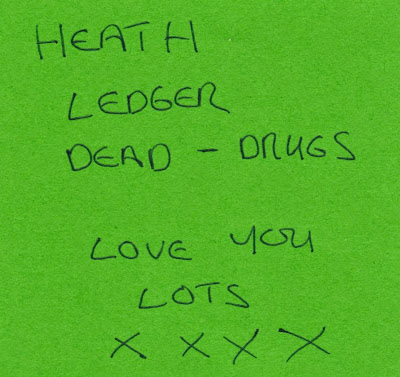 HEATH
LEDGER
DEAD - DRUGS
LOVE YOU
LOTS
X X X X